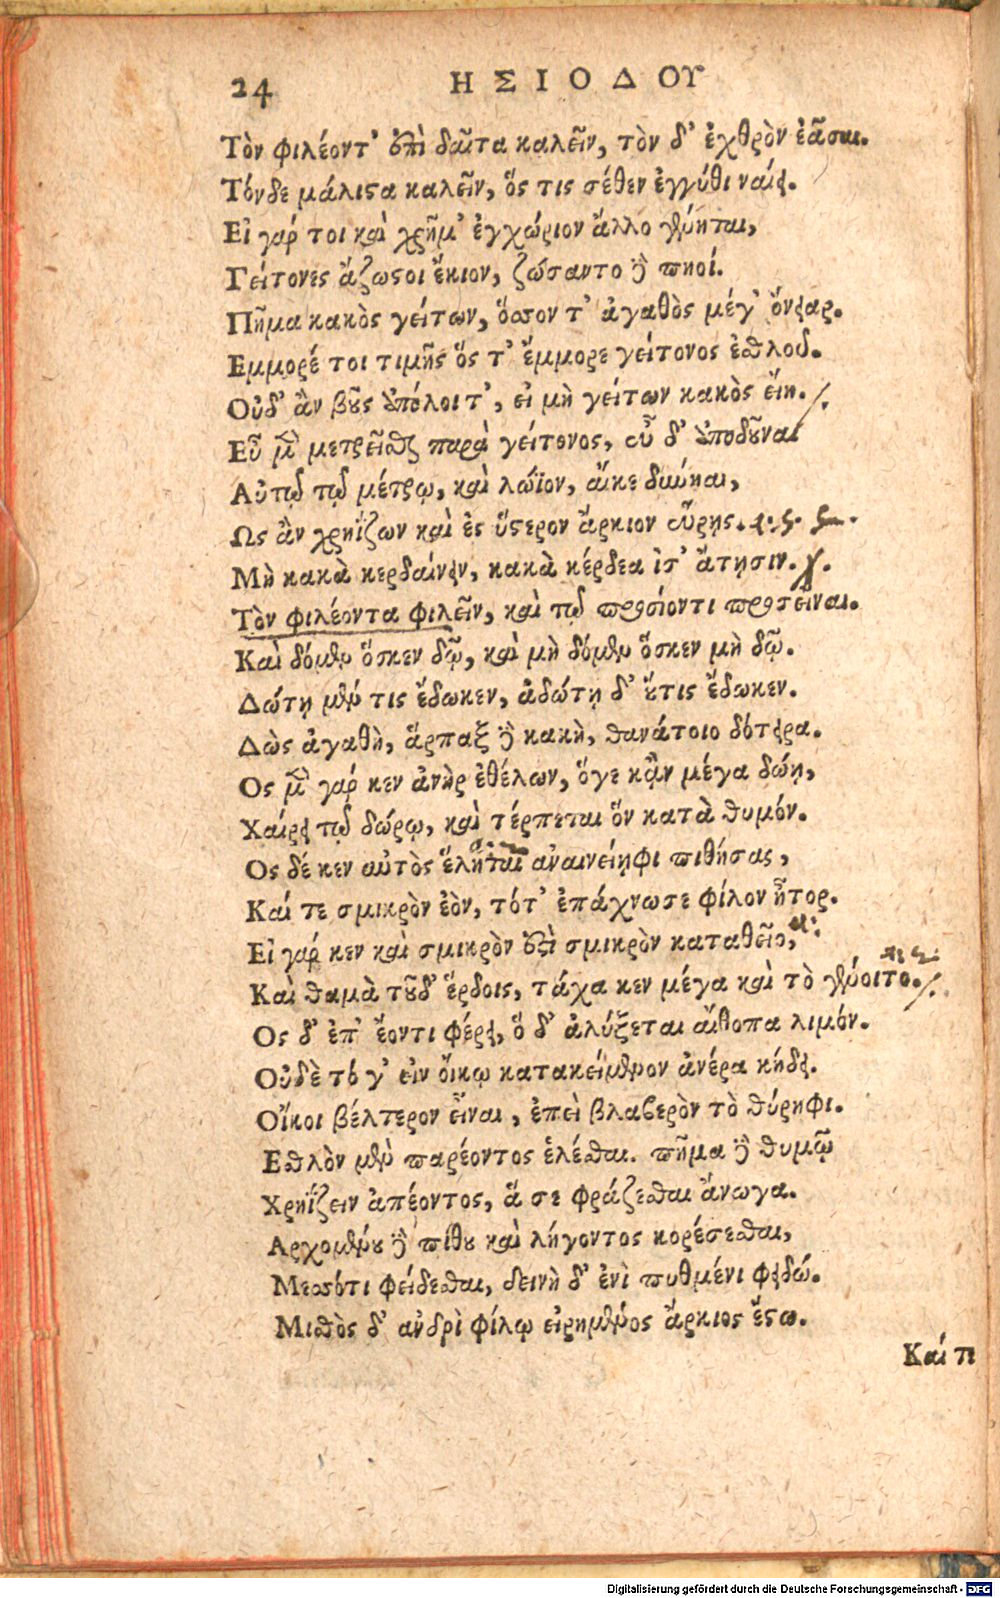 24 ΗΣΙΟΔΟΥ
Τὸν φιλέοντ' ἐπὶ δαῖτα καλεῖν, τὸν δ' ἐχθρὸν ἐᾶσαι.
Τόνδε μάλιστα καλεῖν, ὅς τις σέθεν ἐγγύθι ναίει.
Εἰ γάρ τοι καὶ χρῆμ' ἐγχώριον ἄλλο γένηται,
Γείτονες ἄζωστοι ἔκιον, ζώσαντο δὲ πηοί.
Πῆμα κακὸς γείτων, ὅσσον τ' ἀγαθὸς μέγ' ὄνειαρ.
Εμμορέ τοι τιμῆς ὅς τ' ἔμμορε γείτονος ἐσθλοῦ.
Οὐδ' ἂν βοῦς ἀπόλοιτ', εἰ μὴ γείτων κακὸς εἴη.
Εὖ μὲν μετρεῖσθαι παρὰ γείτονος, εὖ δ' ἀποδοῦναι
Αὐτῷ τῷ μέτρῳ, καὶ λώϊον, αἴκε δύνηαι,
Ως ἂν χρηΐζων καὶ ἐς ὕστερον ἄρκιον εὕρῃς.
Μὴ κακὰ κερδαίνειν, κακὰ κέρδεα ἰσ' ἄτῃσιν.
Τὸν φιλέοντα φιλεῖν, καὶ τῷ προσιόντι προσεῖναι.
Καὶ δόμεν ὅσκεν δῷ, καὶ μὴ δόμεν ὅσκεν μὴ δῷ.
Δώτῃ μέν τις ἔδωκεν, ἀδώτῃ δ' οὔτις ἔδωκεν.
Δὼς ἀγαθὴ, ἅρπαξ δὲ κακὴ, θανάτοιο δότειρα.
Ος μὲν γάρ κεν ἀνὴρ ἐθέλων, ὅγε κᾂν μέγα δώῃ,
Χαίρει τῷ δώρῳ, καὶ τέρπεται ὃν κατὰ θυμόν.
Ος δέ κεν αὐτὸς ἕληται ἀναιδείηφι πιθήσας,
Καί τε σμικρὸν ἐὸν, τότ' ἐπάχνωσε φίλον ἦτορ.
Εἰ γάρ κεν καὶ σμικρὸν ἐπὶ σμικρὸν καταθεῖο,
Καὶ θαμὰ τοῦδ' ἕρδοις, τάχα κεν μέγα καὶ τὸ γένοιτο.
Ος δ' ἐπ' ἐόντι φέρει, ὁ δ' ἀλύξεται αἴθοπα λιμόν.
Οὐδὲ τό γ' εἰν οἴκῳ κατακείμενον ἀνέρα κήδει.
Οἴκοι βέλτερον εἶναι, ἐπεὶ βλαβερὸν τὸ θύρηφι.
Εσθλὸν μὲν παρέοντος ἑλέσθαι. πῆμα δὲ θυμῷ
Χρηΐζειν ἀπέοντος, ἅ σε φράζεσθαι ἄνωγα.
Αρχομένου δὲ πίθου καὶ λήγοντος κορέσεσθαι,
Μεσσότι φείδεσθαι, δεινὴ δ' ἐνὶ πυθμένι φειδώ.
Μισθὸς δ' ἀνδρὶ φίλῳ εἰρημένος ἄρκιος ἔστω.
Καί τι
Digitalisierung gefördert durch die Deutsche Forschungsgemeinschaft - DFG